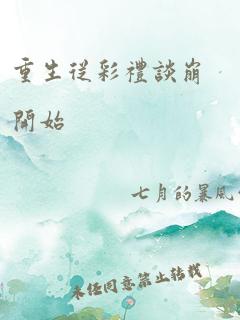 重生從彩禮談崩
開始
七月的暴風
未經同意禁止轉載